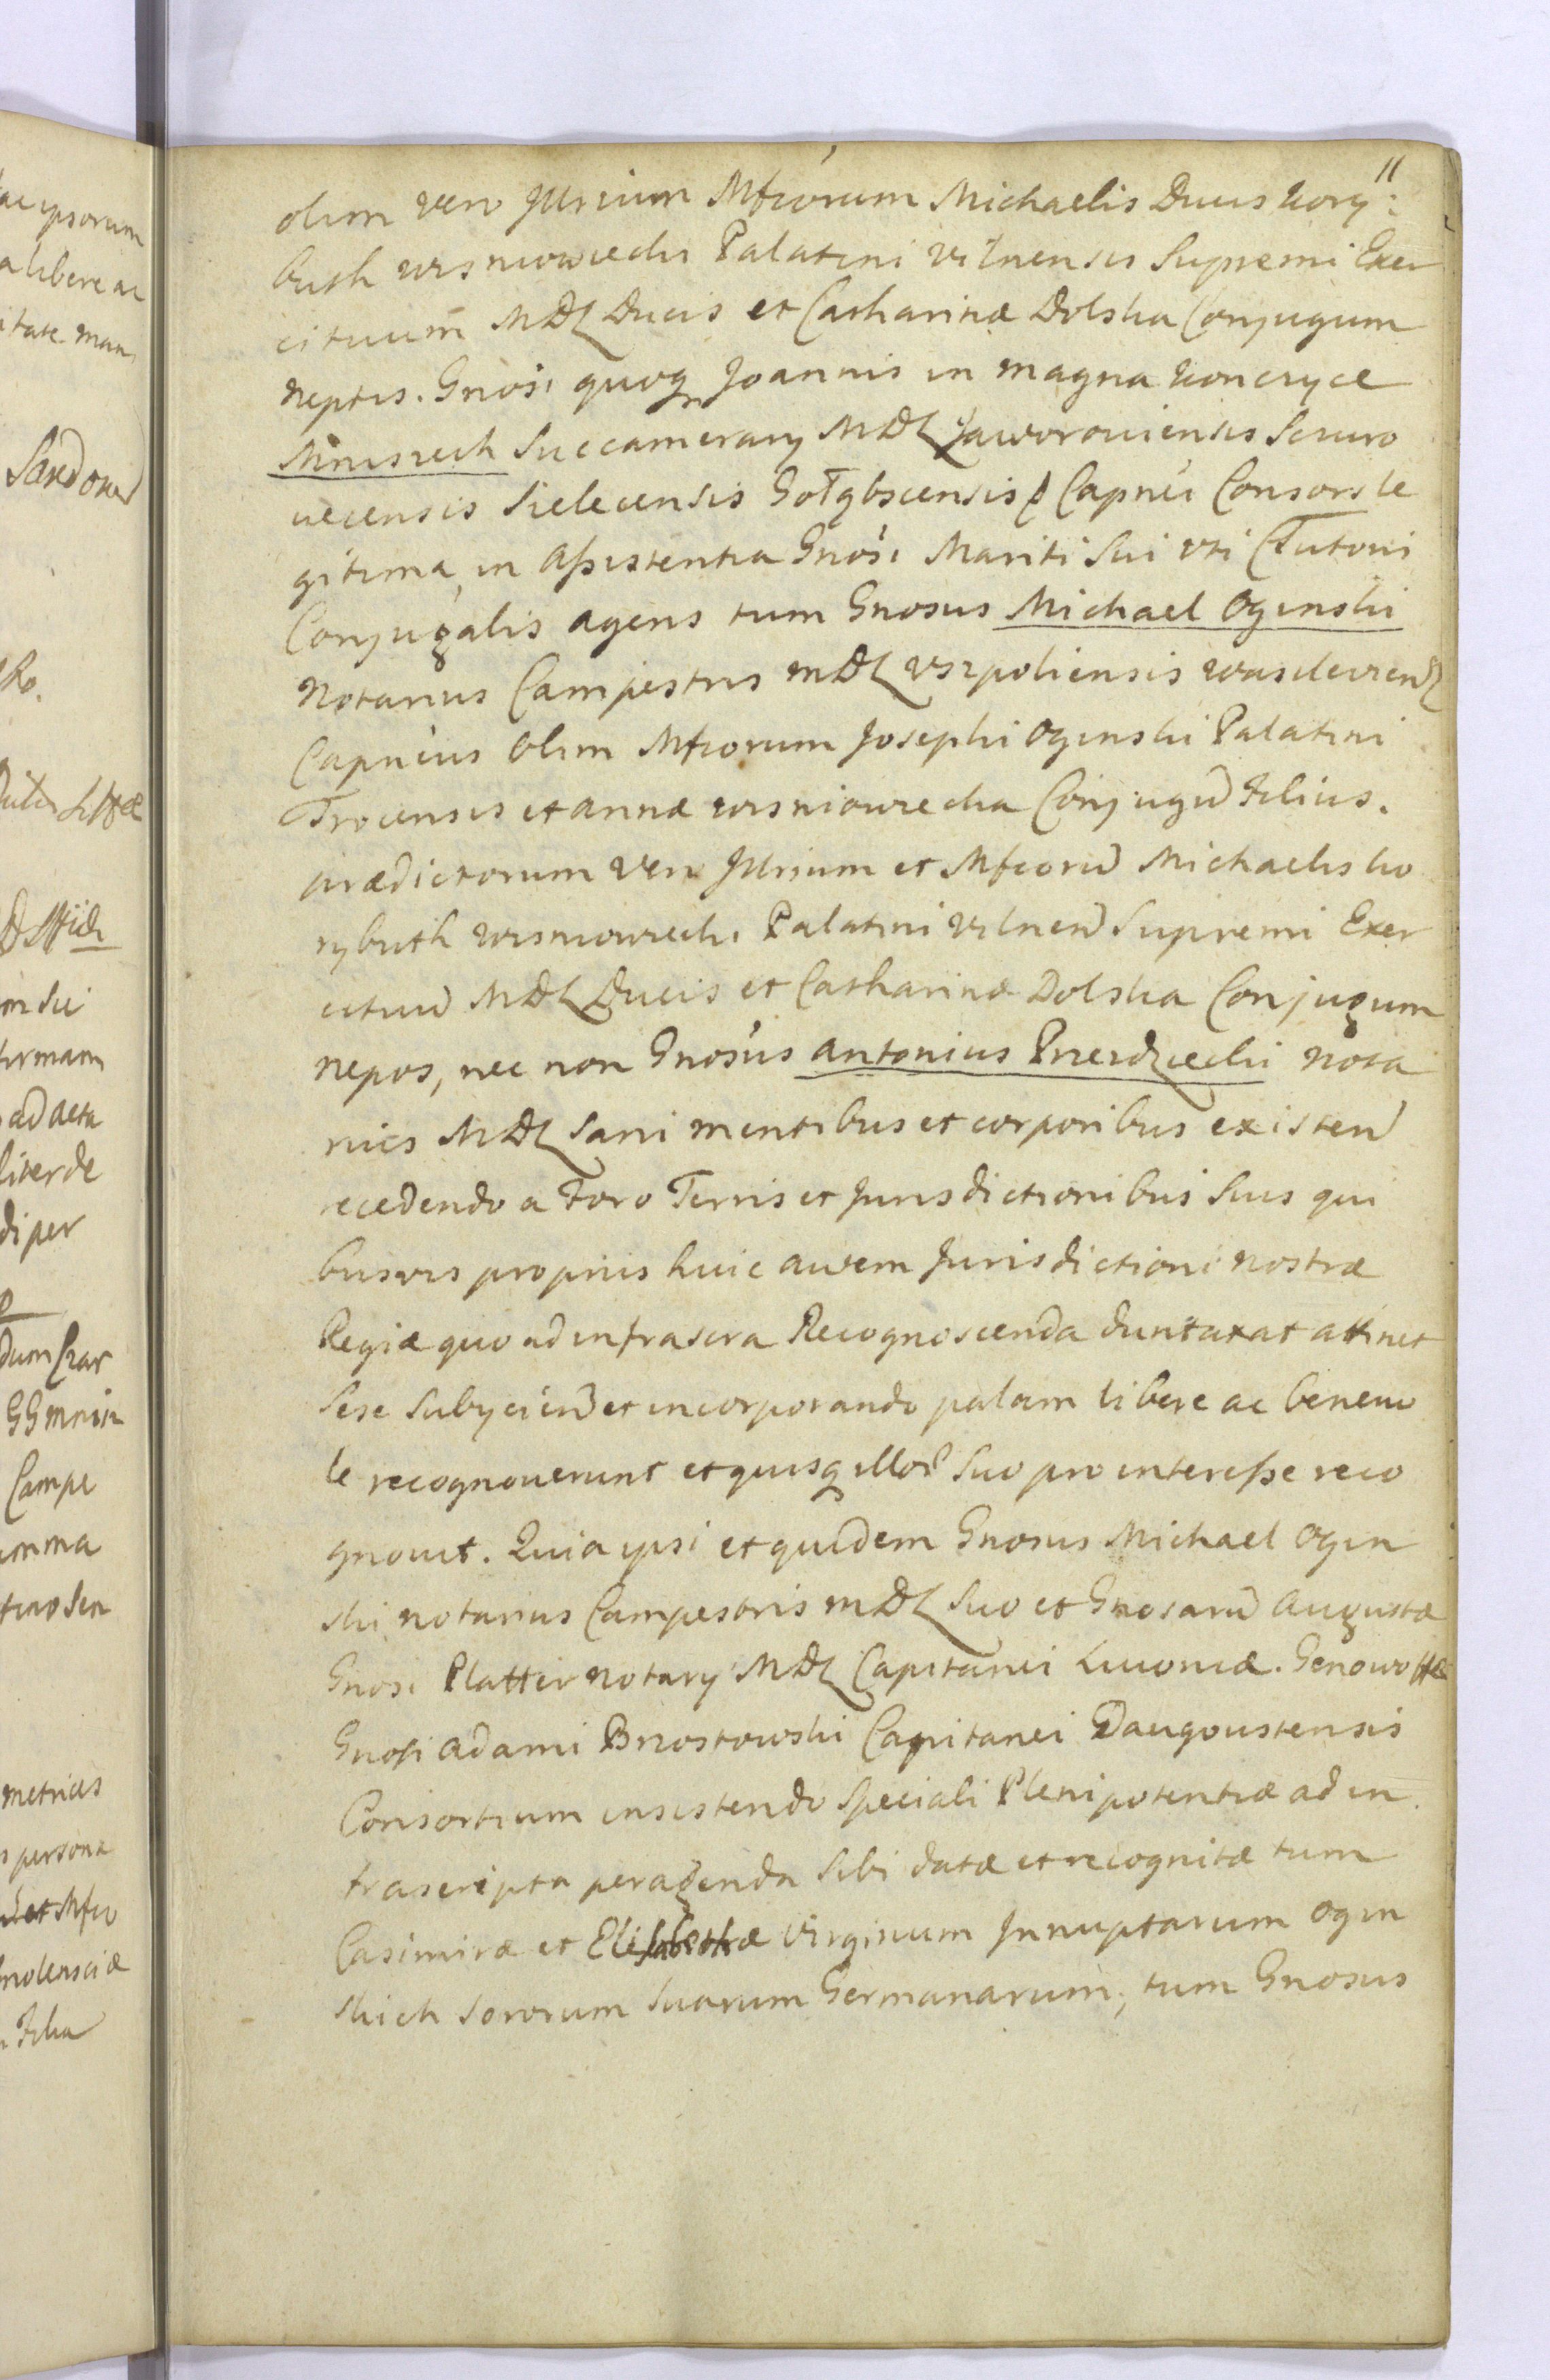 11
olim vero Jllrium Mfcorum Michaelis Ducis Kory:
buth wisniowiecki Palatini vilnensis Supremi Exer
cituum MDL Ducis et Catharinæ Dolska Conjugum
neptis. Gnosi quoq Joannis in magna konczyce
Mniszech Succamerary MDL Jaworoviensis Szczuro
vecensis Sielecensis Gołębscensis Capnei Consors le
gitima, in assistentia Gnosi Mariti sui uti Tutoris
Conjugalis agens tum Gnosus Michael Oginski
Notarius Campestris MDL Uszpoliensis wasilewien
Capneus Olim Mfcorum Josephi Oginski Palatini
Trocensis et annæ wisniowiecka Conjugū Filius.
prædictorum vero Jllrium et Mfcorū Michaelis ko
rybuth wisniowiecki Palatini vilnen Supremi Exer
cituū MDL Ducis et Catharinæ Dolska Conjugum
nepos, nec non Gnosus antonius Przezdziecki nota
rius MDL sani mentibus et corporibus existen
recedendo a Foro Terris et Jurisdictionibus suis qui
busvis proprijs huic autem Jurisdictioni nostræ
Regiæ quo ad infrascra Recognoscenda duntaxat attinet
sese subyciend et incorporando palam libere ac benevo
le recognoverunt et quisq illor suo pro interesse reco
gnovit. Quia ipsi et quidem Gnosus Michael Ogin
ski notarius Campestris MDL suo et Gnosarū Augustæ
Gnosi Platter Notary MDL Capitanei Livoniæ. Genowoffæ
Gnosi adami Brzostowski Capitanei Daugoustensis
Consortium insistendo speciali Plenipotentiæ ad in
frascripta peragenda sibi datæ et recognitæ tum
Casimiræ et Elisabethæ Virginum Jnnuptarum Ogin
skich sororum suarum Germanarum, tum Gnosus
ac ipsorum
a libere ac
itate man
ad acta
liter de
di per
Campe
metrices
persona
Filia